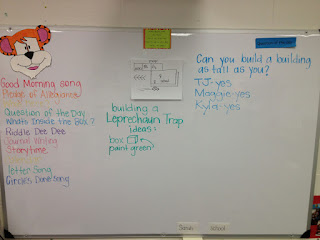 Good Morning song
Pledge of Allegiance
Question of the Day
What's Inside the Box?
Riddle Dee Dee
Journal Writing
Storytime
Letter Song
building a
Leprechaun Trap
ideas:
box
paint green
Can you build a building
as tall as you?
TJ-yes
Maggie-yes
Kyla-yes
school